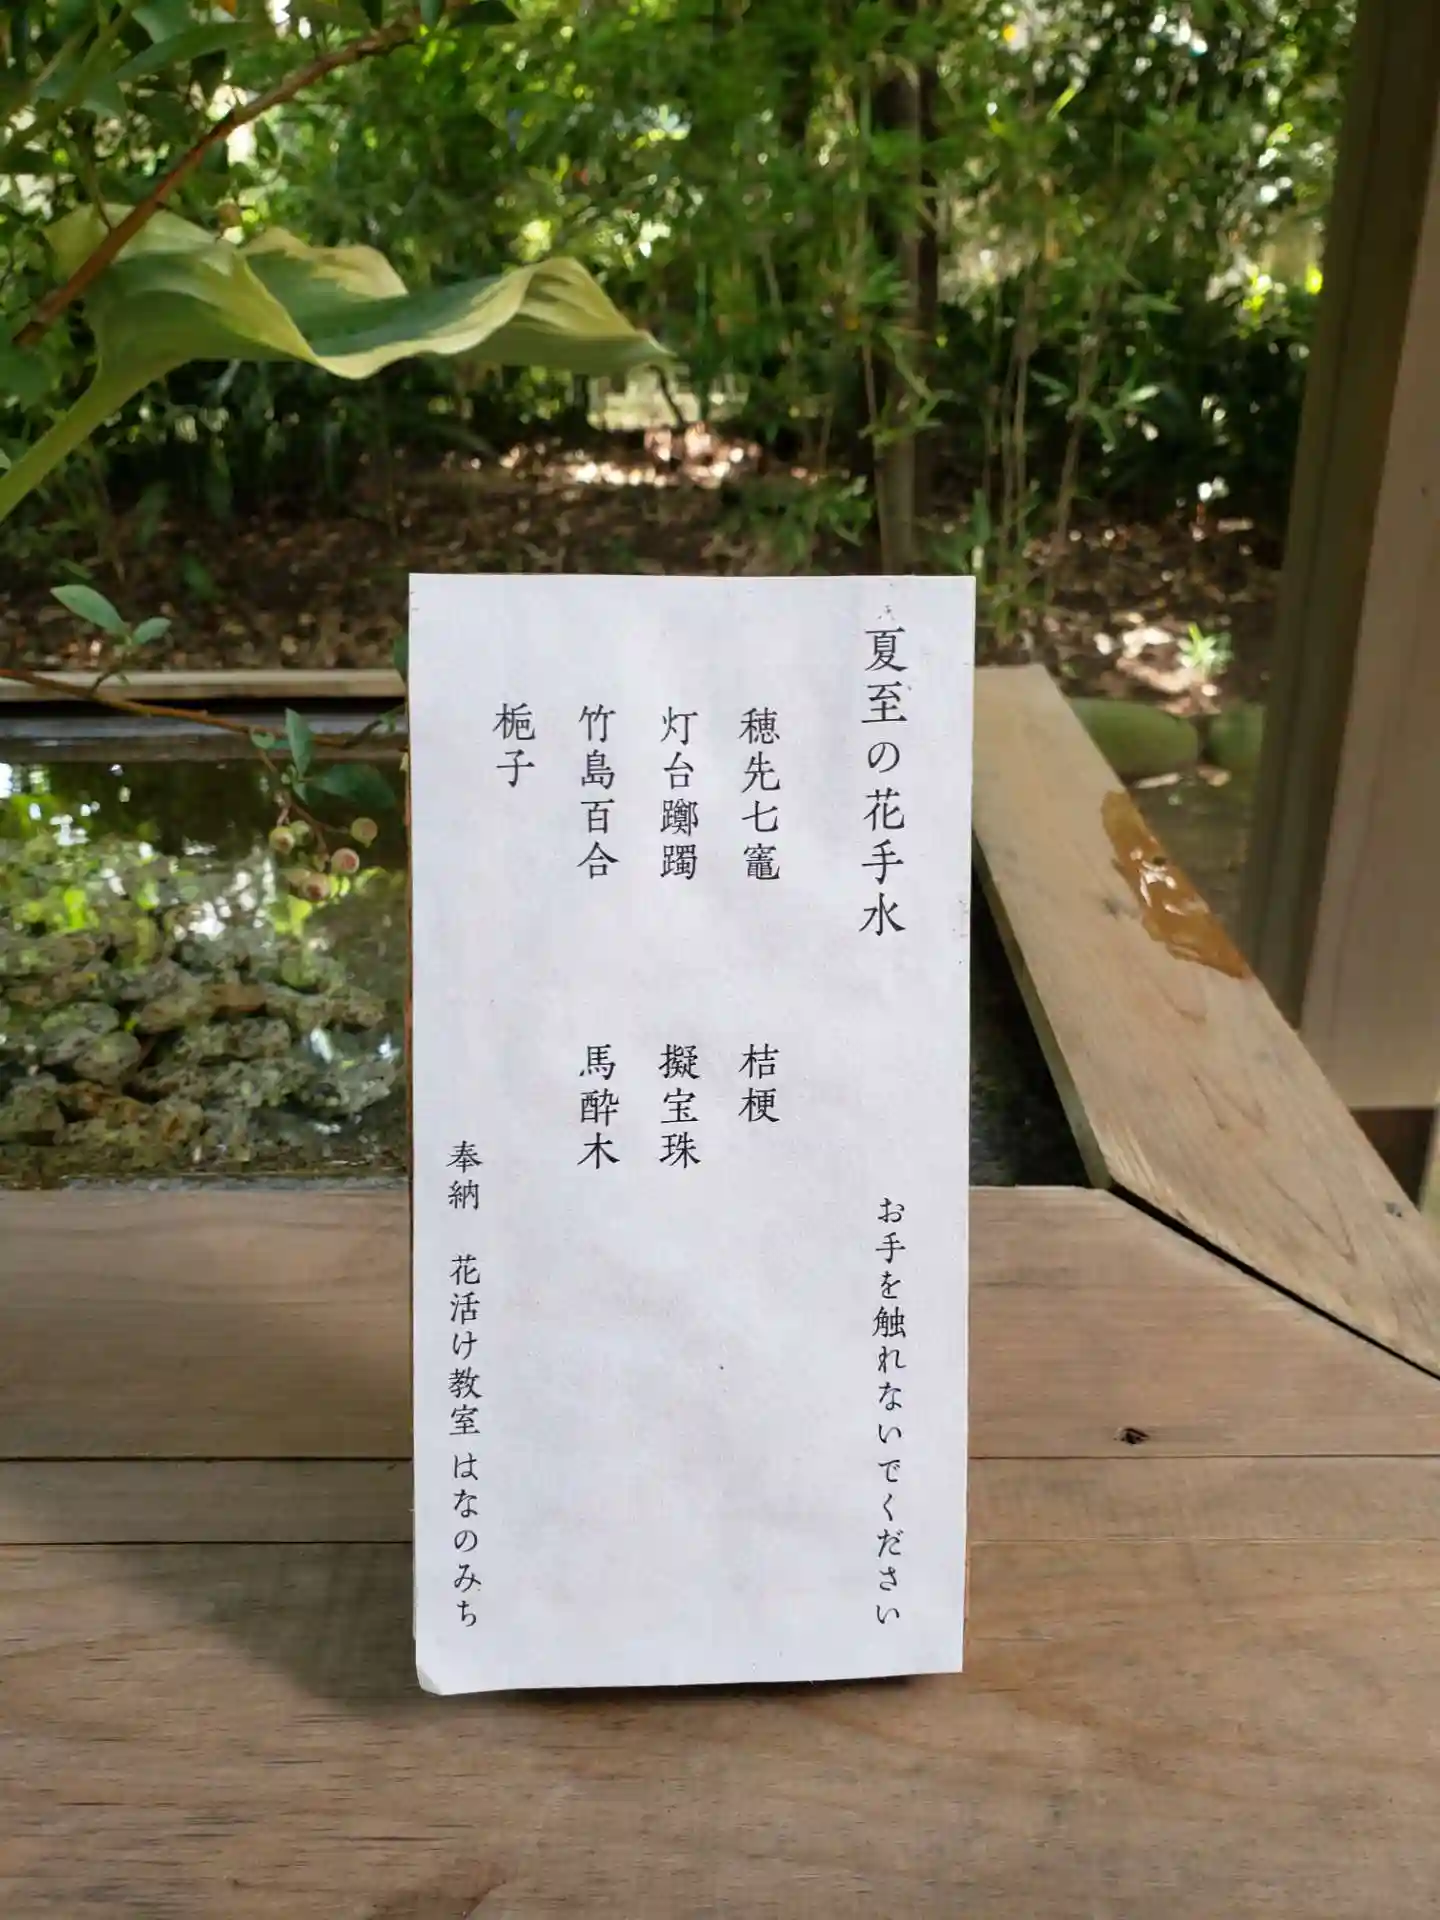 夏至の花手水
お手を触れないでください
穂先七竈
桔梗
灯台躑躅
擬宝珠
竹島百合
馬酔木
梔子
奉納 花活け教室 はなのみち